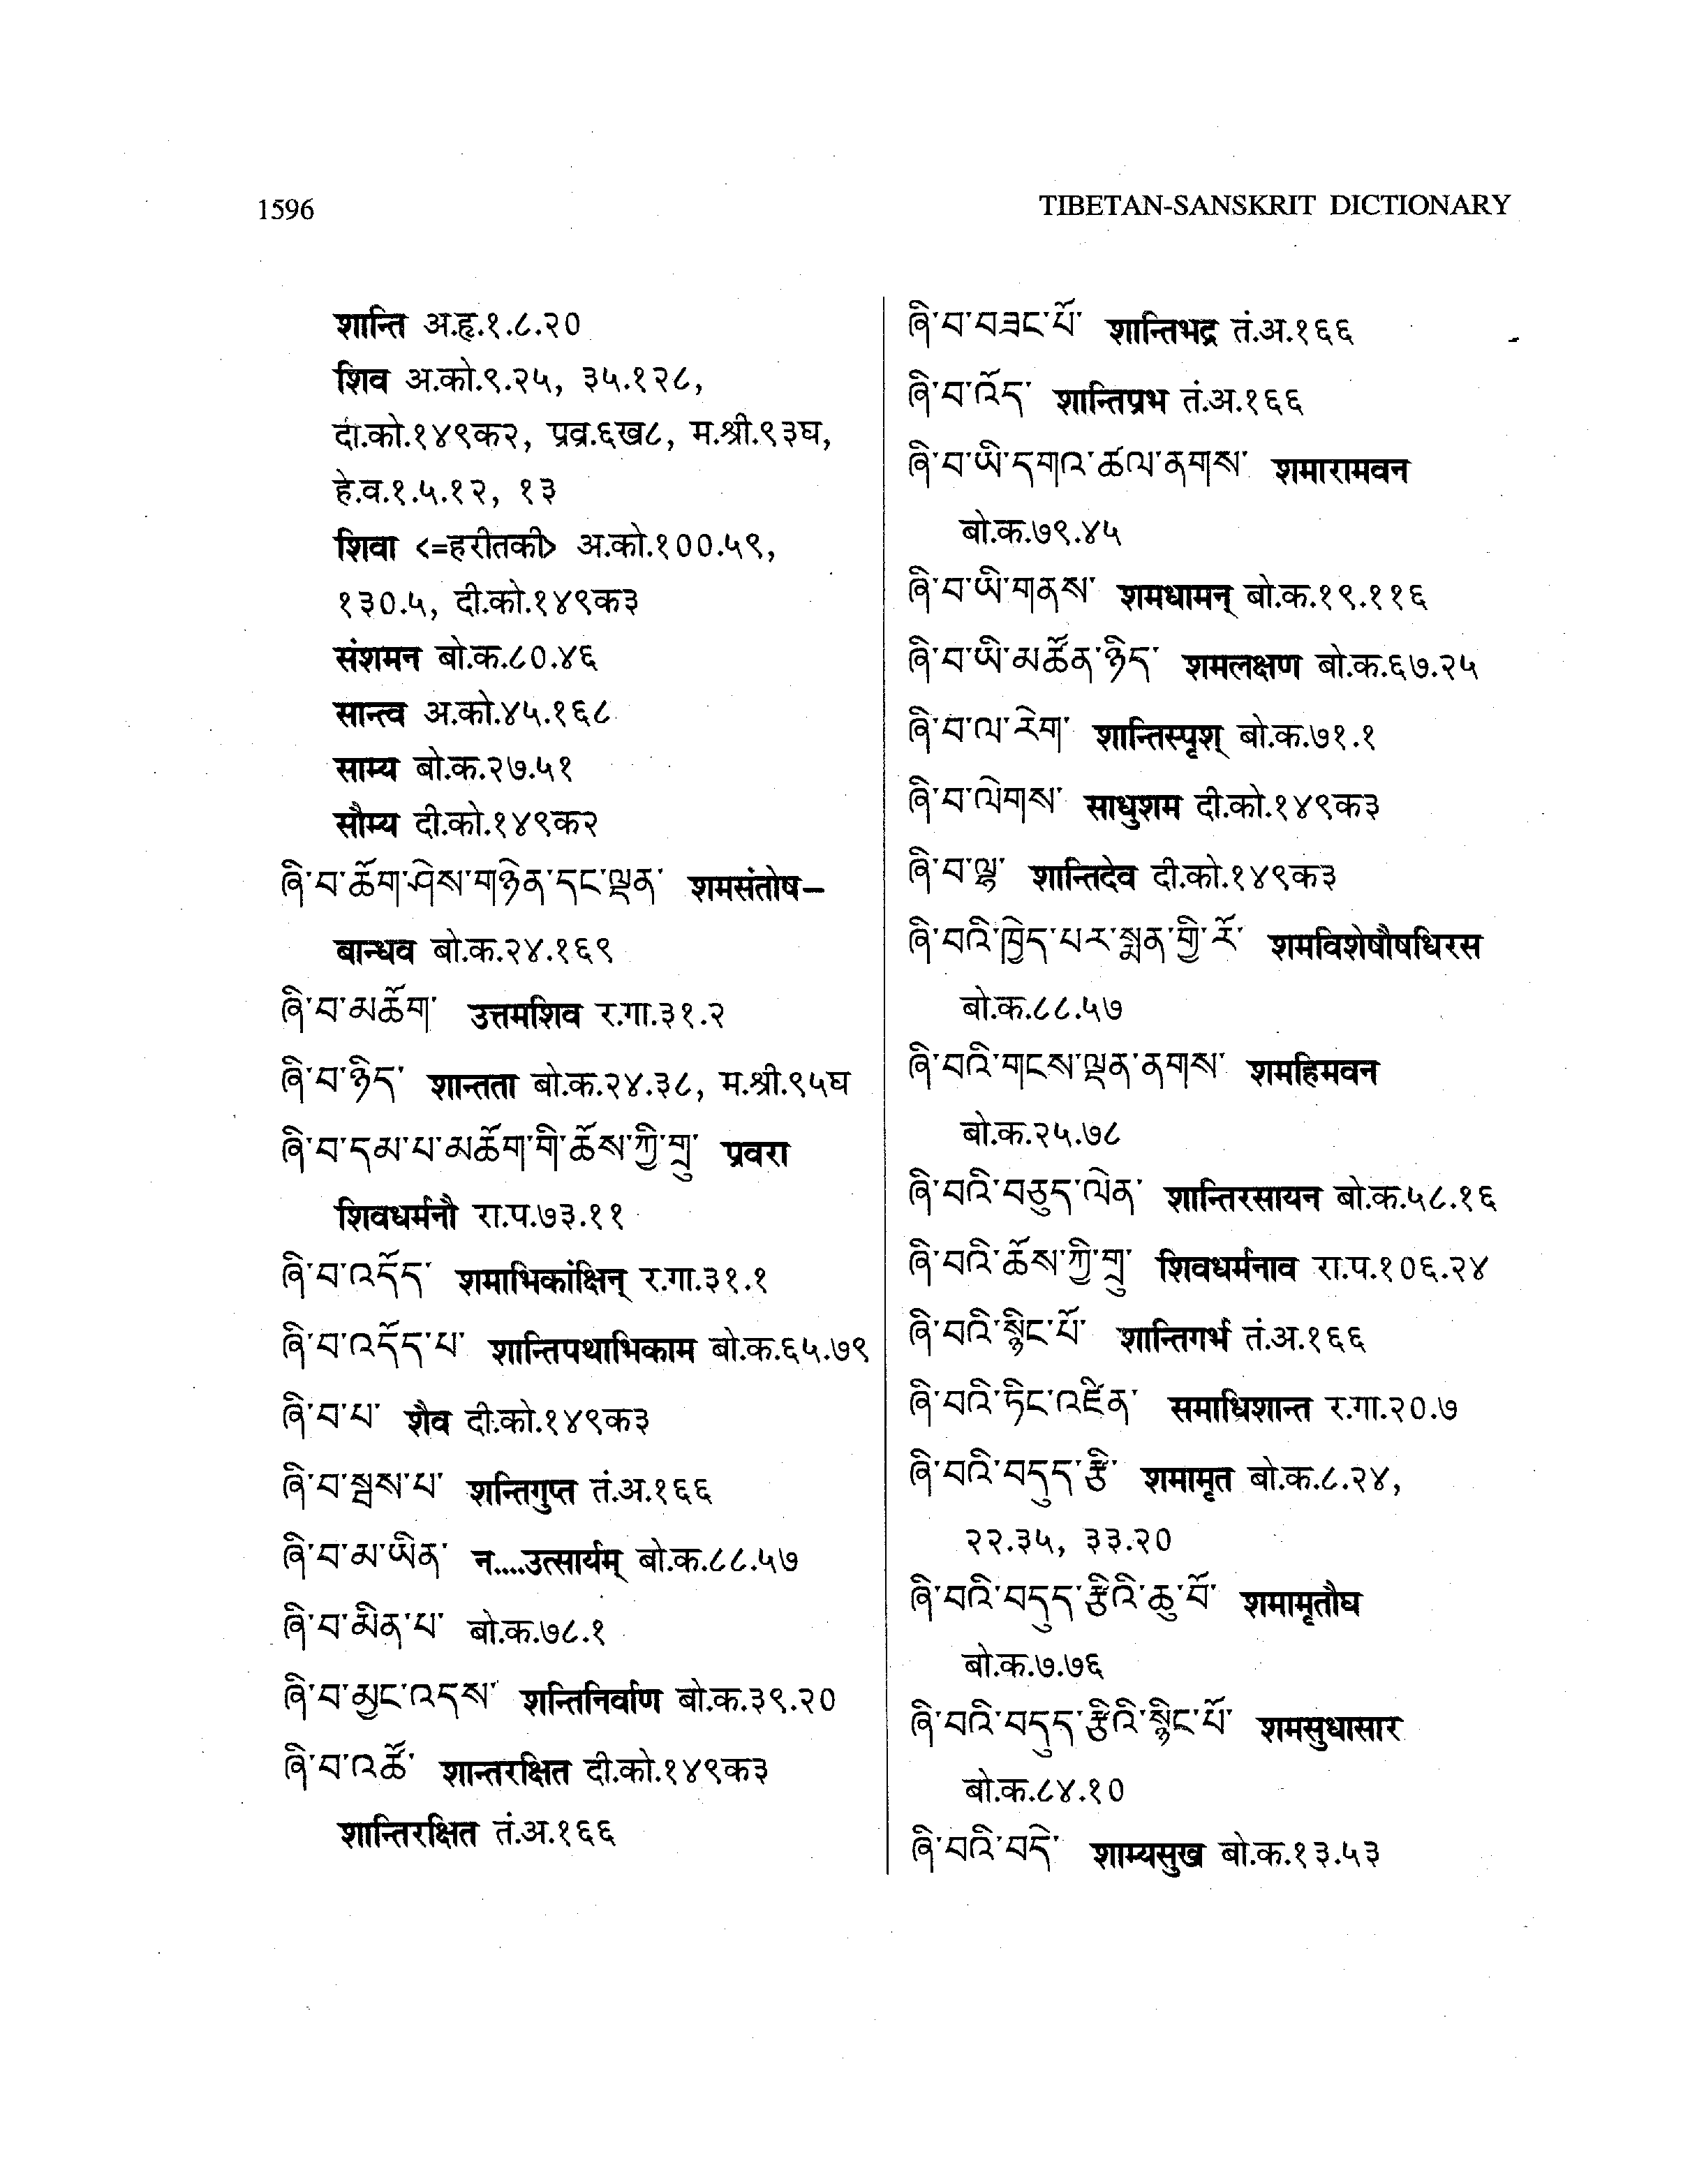 1596
TIBETAN-SANSKRIT DICTIONARY
शान्ति अ.हृ.१.८.२०
शिव अ.को.९.२५, ३५.१२८,
दी.को.१४९क२, प्रव्र.६ख८, म.श्री.९३घ,
हे.व.१.५.१२, १३
शिवा <=हरीतकी> अ.को.१००.५९,
१३०.५, दी.को.१४९क३
संशमन बो.क.८०.४६
सान्त्व अ.को.४५.१६८
साम्य बो.क.२७.५१
सौम्य दी.को.१४९क२
ཞི་བ་ཆོག་ཤེས་གཉེན་དང་ལྡན་ शमसंतोष–
बान्धव बो.क.२४.१६९
ཞི་བ་མཆོག་ उत्तमशिव र.गा.३१.२
ཞི་བ་ཉིད་ शान्तता बो.क.२४.३८, म.श्री.९५घ
ཞི་བ་དམ་པ་མཆོག་གི་ཆོས་ཀྱི་གྲུ་ प्रवरा
शिवधर्मनौ रा.प.७३.११
ཞི་བ་འདོད་ शमाभिकांक्षिन् र.गा.३१.१
ཞི་བ་འདོད་པ་ शान्तिपथाभिकाम बो.क.६५.७९
ཞི་བ་པ་ शैव दी.को.१४९क३
ཞི་བ་སྦས་པ་ शन्तिगुप्त तं.अ.१६६
ཞི་བ་མ་ཡིན་ न....उत्सार्यम् बो.क.८८.५७
ཞི་བ་མིན་པ་ बो.क.७८.१
ཞི་བ་མྱང་འདས་ शन्तिनिर्वाण बो.क.३९.२०
ཞི་བ་འཚོ་ शान्तरक्षित दी.को.१४९क३
शान्तिरक्षित तं.अ.१६६
ཞི་བ་བཟང་པོ་ शान्तिभद्र तं.अ.१६६
ཞི་བ་འོད་ शान्तिप्रभ तं.अ.१६६
ཞི་བ་ཡི་དགའ་ཚལ་ནགས་ शमारामवन
बो.क.७९.४५
ཞི་བ་ཡི་གནས་ शमधामन् बो.क.१९.११६
ཞི་བ་ཡི་མཚོན་ཉིད་ शमलक्षण बो.क.६७.२५
ཞི་བ་ལ་རེག་ शान्तिस्पृश् बो.क.७१.१
ཞི་བ་ལེགས་ साधुशम दी.को.१४९क३
ཞི་བ་ལྷ་ शान्तिदेव दी.को.१४९क३
ཞི་བའི་ཁྱེད་པར་སྨན་གྱི་རོ་ शमविशेषौषधिरस
बो.क.८८.५७
ཞི་བའི་གངས་ལྡན་ནགས་ शमहिमवन
बो.क.२५.७८
ཞི་བའི་བཅུད་ལེན་ शान्तिरसायन बो.क.५८.१६
ཞི་བའི་ཆོས་ཀྱི་གྲུ་ शिवधर्मनाव रा.प.१०६.२४
ཞི་བའི་སྙིང་པོ་ शान्तिगर्भ तं.अ.१६६
ཞི་བའི་ཏིང་འཛིན་ समाधिशान्त र.गा.२०.७
ཞི་བའི་བདུད་རྩི་ शमामृत बो.क.८.२४,
२२.३५, ३३.२०
ཞི་བའི་བདུད་རྩིའི་ཆུ་བོ་ शमामृतौघ
बो.क.७.७६
ཞི་བའི་བདུད་རྩིའི་སྙིང་པོ་ शमसुधासार
बो.क.८४.१०
ཞི་བའི་བདེ་ शाम्यसुख बो.क.१३.५३